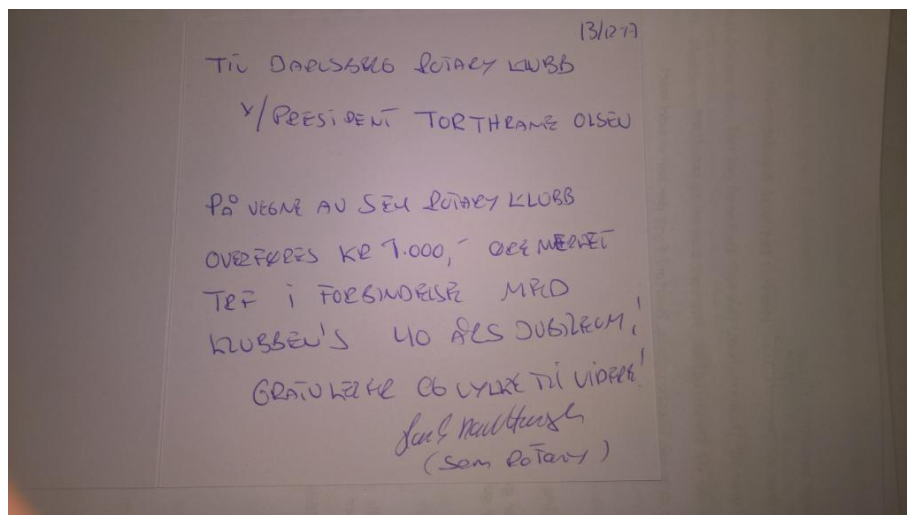 13/12-17
TIL JARLSBERG ROTARY KLUBB
V/PRESIDENT TOR THRANE OLSEN
PÅ VEGNE AV SEM ROTARY KLUBB
OVERFØRES KR 1.000,- ØREMERKET
TRF I FORBINDELSE MED
KLUBBEN'S 40 ÅRS JUBILEUM!
GRATULERER OG LYKKE TIL VIDERE!
(SEM ROTARY)